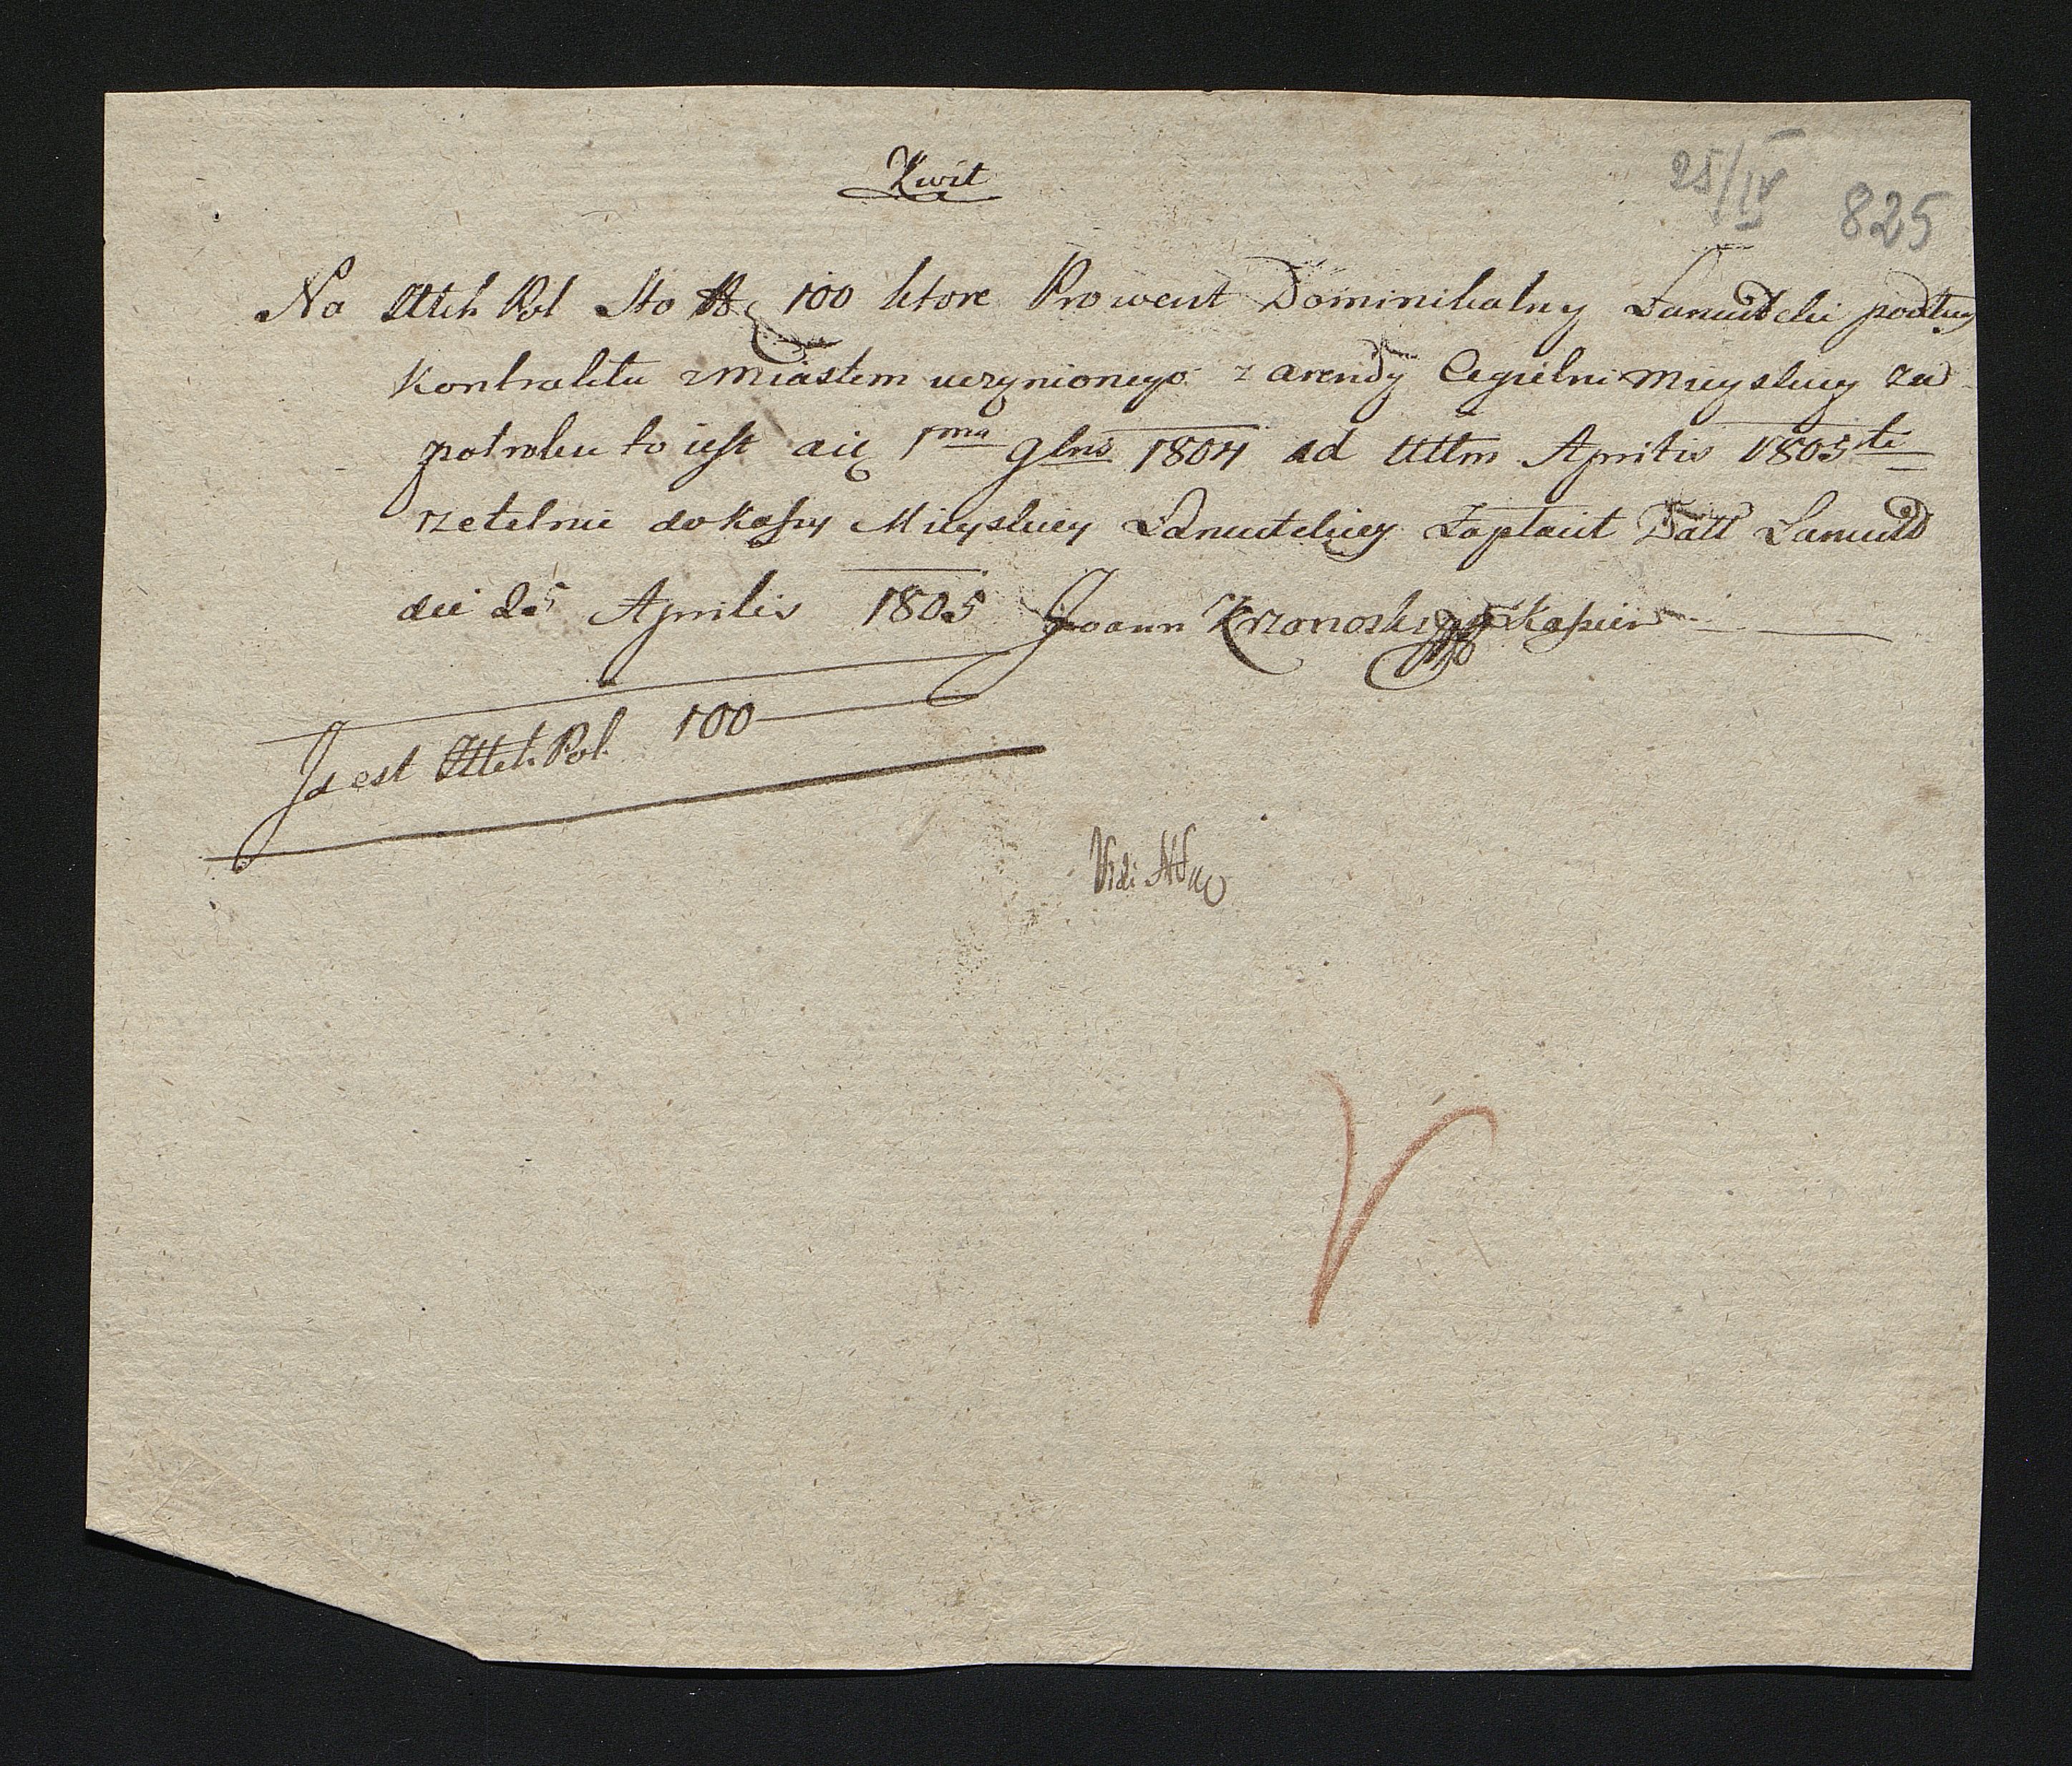 Kwit
25/IV 825
Na Złtch Pol Sto 100 ktore Prowent Dominikalny Łancutcki podług
Kontraktu z Miastem uczynionego z arendy Cegielni Mieyskiey za
poł roku to iest a 1ma 9bris 1804 ad Ultm Aprilis 1805ti
rzetelnie do Kassy Mieyskiey Łancutckiey Zapłacił Datt Łancutt
die 25 Aprilis 1805 Joann Krzonoski Kassier
Id est Złtch. Pol. 100
Vidi